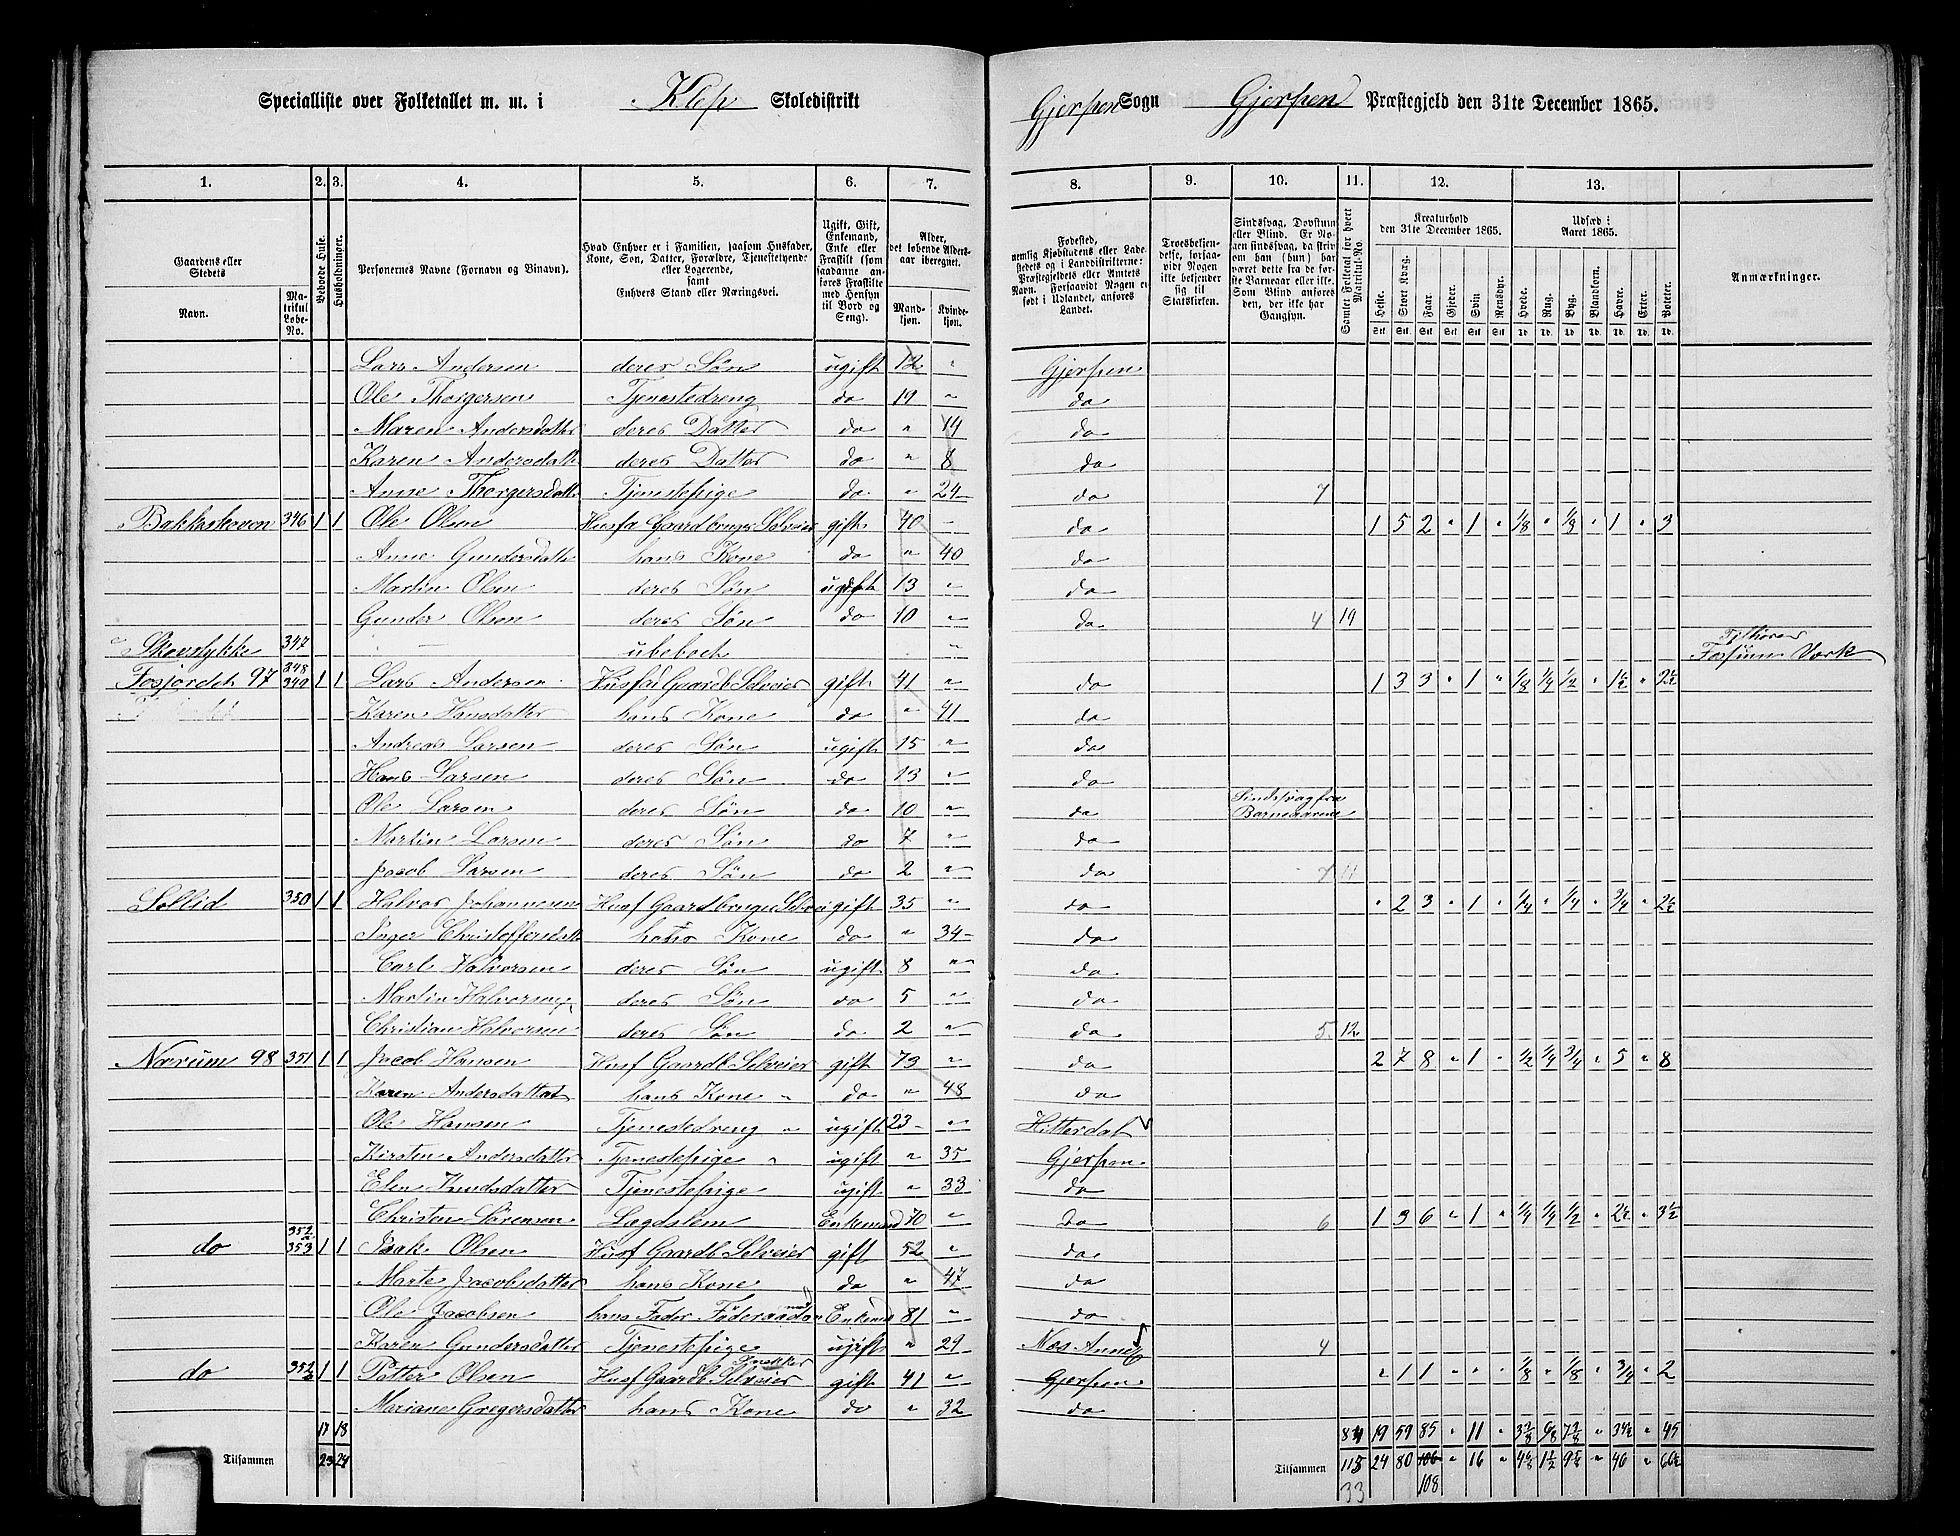 Specialliste over Folketallet m. m. i Klep Skoledistrikt Gjerpen Sogn Gjerpen Præstegjeld den 31te December 1865.
1. 2. 3. 4. 5. 6. 7. 8. 9. 10. 11. 12. 13.
Gaardens eller Stedets Navn. Matrikul Løbe-No. Beboede Huse. Husholdninger. Personernes Navne (Fornavn og Binavn). Hvad Enhver er i Familien, saasom Husfader, Kone, Søn, Datter, Forældre, Tjenestetyende eller Logerende, samt Enhvers Stand eller Næringsvei. Ugift, Gift, Enkemand, Enke eller Fraskilt (som saadanne anføres Fraskilte med Hensyn til Bord og Seng). Alder, det løbende Aldersaar iberegnet. Mandkjøn. Kvindekjøn.
Fødested, nemlig Kjøbstadens eller Ladestedets og i Landdistrikterne: Præstegjeldets eller Amtets Navn. Forsaavidt Nogen er født i Udlandet, anføres Landet. Troesbekjendelse, forsaavidt Nogen ikke bekjender sig til Statskirken. Sindssvag, Døvstum eller Blind. Er Nogen sindssvag, da skrives om han (hun) har været dette fra de første Barneaar eller ikke. Som Blind anføres den, der ikke har Gangsyn. Samlet Folketal for hvert Matrikul-No. Kreaturhold den 31te December 1865. Udsæd i Aaret 1865. Anmærkninger.
Heste. Stort Kvæg. Faar. Gjeder. Svin. Rensdyr. Hvede. Rug. Byg. Blandkorn. Havre. Erter. Poteter.
Lars Andersen deres Søn ugift 12 " Gjerpen
Ole Thorgersen Tjenestedreng do 19 " do
Maren Andersdatter deres Datter do " 14 do
Karen Andersdatt deres Datter do " 8 do
Anne Thorgersdatt Tjenestepige do " 24 do 7
Bakkeskoven 346 1 1 Ole Olsen Husfa Gaardbruger Selveier gift 40 " do 1 5 2 " 1 " 1/8 " 1/8 " 1 " 3
Anne Gundersdatte hans Kone do " 40 do
Martin Olsen deres Søn ugift 13 " do
Gunder Olsen deres Søn do 10 " do 4 19
Skovstykke 347 ubeboet " Tilhører
Fossum Værk
Fosjordet 97 348 349 1 1 Lars Andersen Husfa Gaardb Selveier gift 41 " do 1 3 3 " 1 " 1/8 1/4 1/2 " 1 1/2 " 2 1/2
Karen Hansdatter hans Kone do " 41 do
Andreas Larsen deres Søn ugift 15 " do
Hans Larsen deres Søn do 13 " do
Ole Larsen deres Søn do 10 " do Sindssvag fra Barneaarene
Martin Larsen deres Søn do 7 " do
Jacob Larsen deres Søn do 2 " do 7 11
Sollid 350 1 1 Halvor Johannesen Husf Gaardbruger Selvei gift 35 " do " 2 3 " 1 " 1/4 " 1/4 " 3/4 " 2 1/2
Inger Christoffersdatt hans Kone do " 34 do
Carl Halvorsen deres Søn ugift 8 " do
Martin Halvorsen deres Søn do 5 " do
Christian Halvorsen deres Søn do 2 " do 5 12
Nærum 98 351 1 1 Jacob Hansen Husf Gaardb Selveier gift 73 " do 2 7 8 " 1 " 1/2 1/4 3/4 " 5 " 8
Karen Andersdatter hans Kone do " 48 do
Ole Hansen Tjenestedreng ugift 23 " Hitterdal
Kirsten Andersdatter Tjenestepige ugift " 35 Gjerpen
Elen Knudsdatter Tjenestepige ugift " 33 do
Christen Sørensen Lægdslem Enkemand 70 do 6 1 3 6 " 1 " 1/4 1/4 1/2 " 2 1/2 " 3 1/2
do 352 353 1 1 Isak Olsen Husf Gaardb Selveier gift 52 " do
Marte Jacobsdatter hans Kone do " 47 do
Ole Jacobsen hans Fader Föderaadsmand Enkemd 81 " do
Karen Gundersdatter Tjenestepige ugift " 29 Næs 4
do 352 1 1 Petter Olsen Husf Gaardb Selveier Snekker gift 41 " Gjerpen " 1 1 " " " 1/8 " 1/8 " 3/4 " 2
Mariane Gregersdatter hans Kone do " 32 do
17 18 84 19 59 85 " 11 " 45
Tilsammen 23 24 Tilsammen 115 24 80 106 " 16 " 60 1/2
33 108